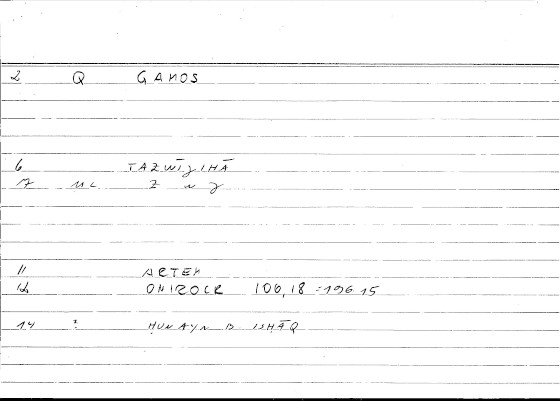 2 Q GAMOS
6 TAZWĪJIHĀ
7 ML Z W J
11 ARTEM
12 ONIROCR 106,18 = 196 15
14 : ḤUNAYN B ISḤĀQ